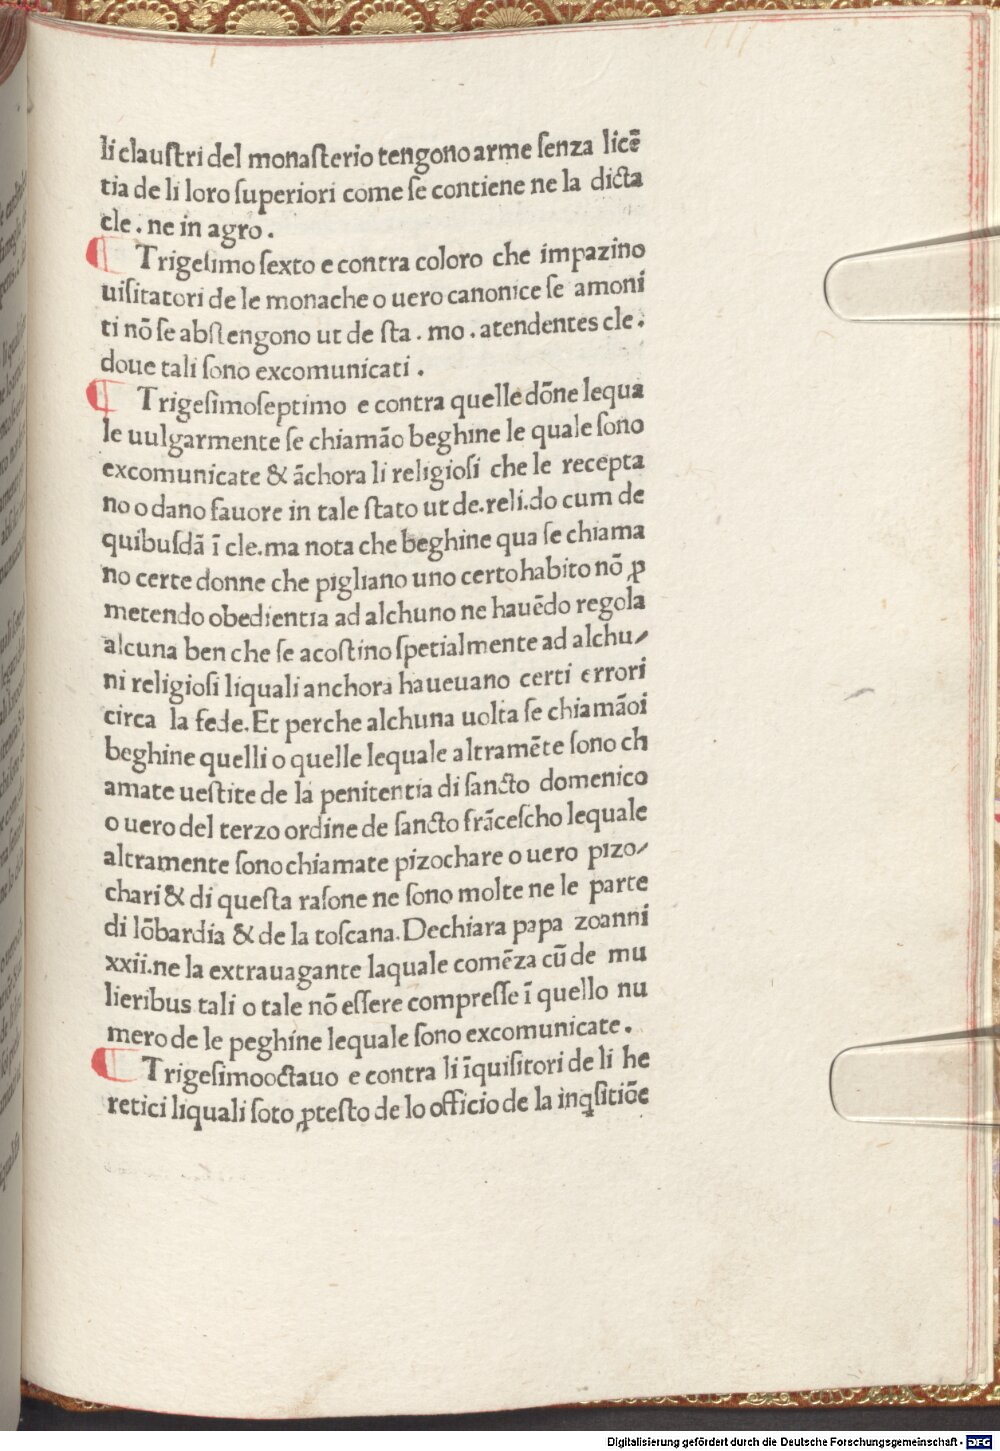 li clauſtri del monaſterio tengono arme ſenza licē
tia de li loro ſuperiori come ſe contiene ne la dicta
cle. ne in agro.
Trigeſimo ſexto e contra coloro che impazino
uiſitatori de le monache o uero canonice ſe amoni
ti nō ſe abſtengono ut de ſta. mo. atendentes cle.
doue tali ſono excomunicati.
Trigeſimoſeptimo e contra quelle dōne lequa
le uulgarmente ſe chiamāo beghine le quale ſono
excomunicate & āchora li religioſi che le recepta
no o dano fauore in tale ſtato ut de.reli.do cum de
quibuſdā ī cle.ma nota che beghine qua ſe chiama
no certe donne che pigliano uno certo habito nō ꝓ
metendo obedientia ad alchuno ne hauēdo regola
alcuna ben che ſe acoſtino ſpetialmente ad alchu/
ni religioſi liquali anchora haueuano certi errori
circa la fede.Et perche alchuna uolta ſe chiamāoi
beghine quelli o quelle lequale altramēte ſono ch
amate ueſtite de la penitentia di ſancto domenico
o uero del terzo ordine de ſancto frāceſcho lequale
altramente ſono chiamate pizochare o uero pizo/
chari & di queſta raſone ne ſono molte ne le parte
di lōbardia & de la toſcana.Dechiara papa zoanni
xxii.ne la extrauagante laquale comēza cū de mu
lieribus tali o tale nō eſſere compreſſe ī quello nu
mero de le peghine lequale ſono excomunicate.
Trigeſimooctauo e contra li īquiſitori de li he
retici liquali ſoto ꝓteſto de lo officio de la inqſitiōe
Digitalisierung gefördert durch die Deutsche Forschungsgemeinschaft - DFG